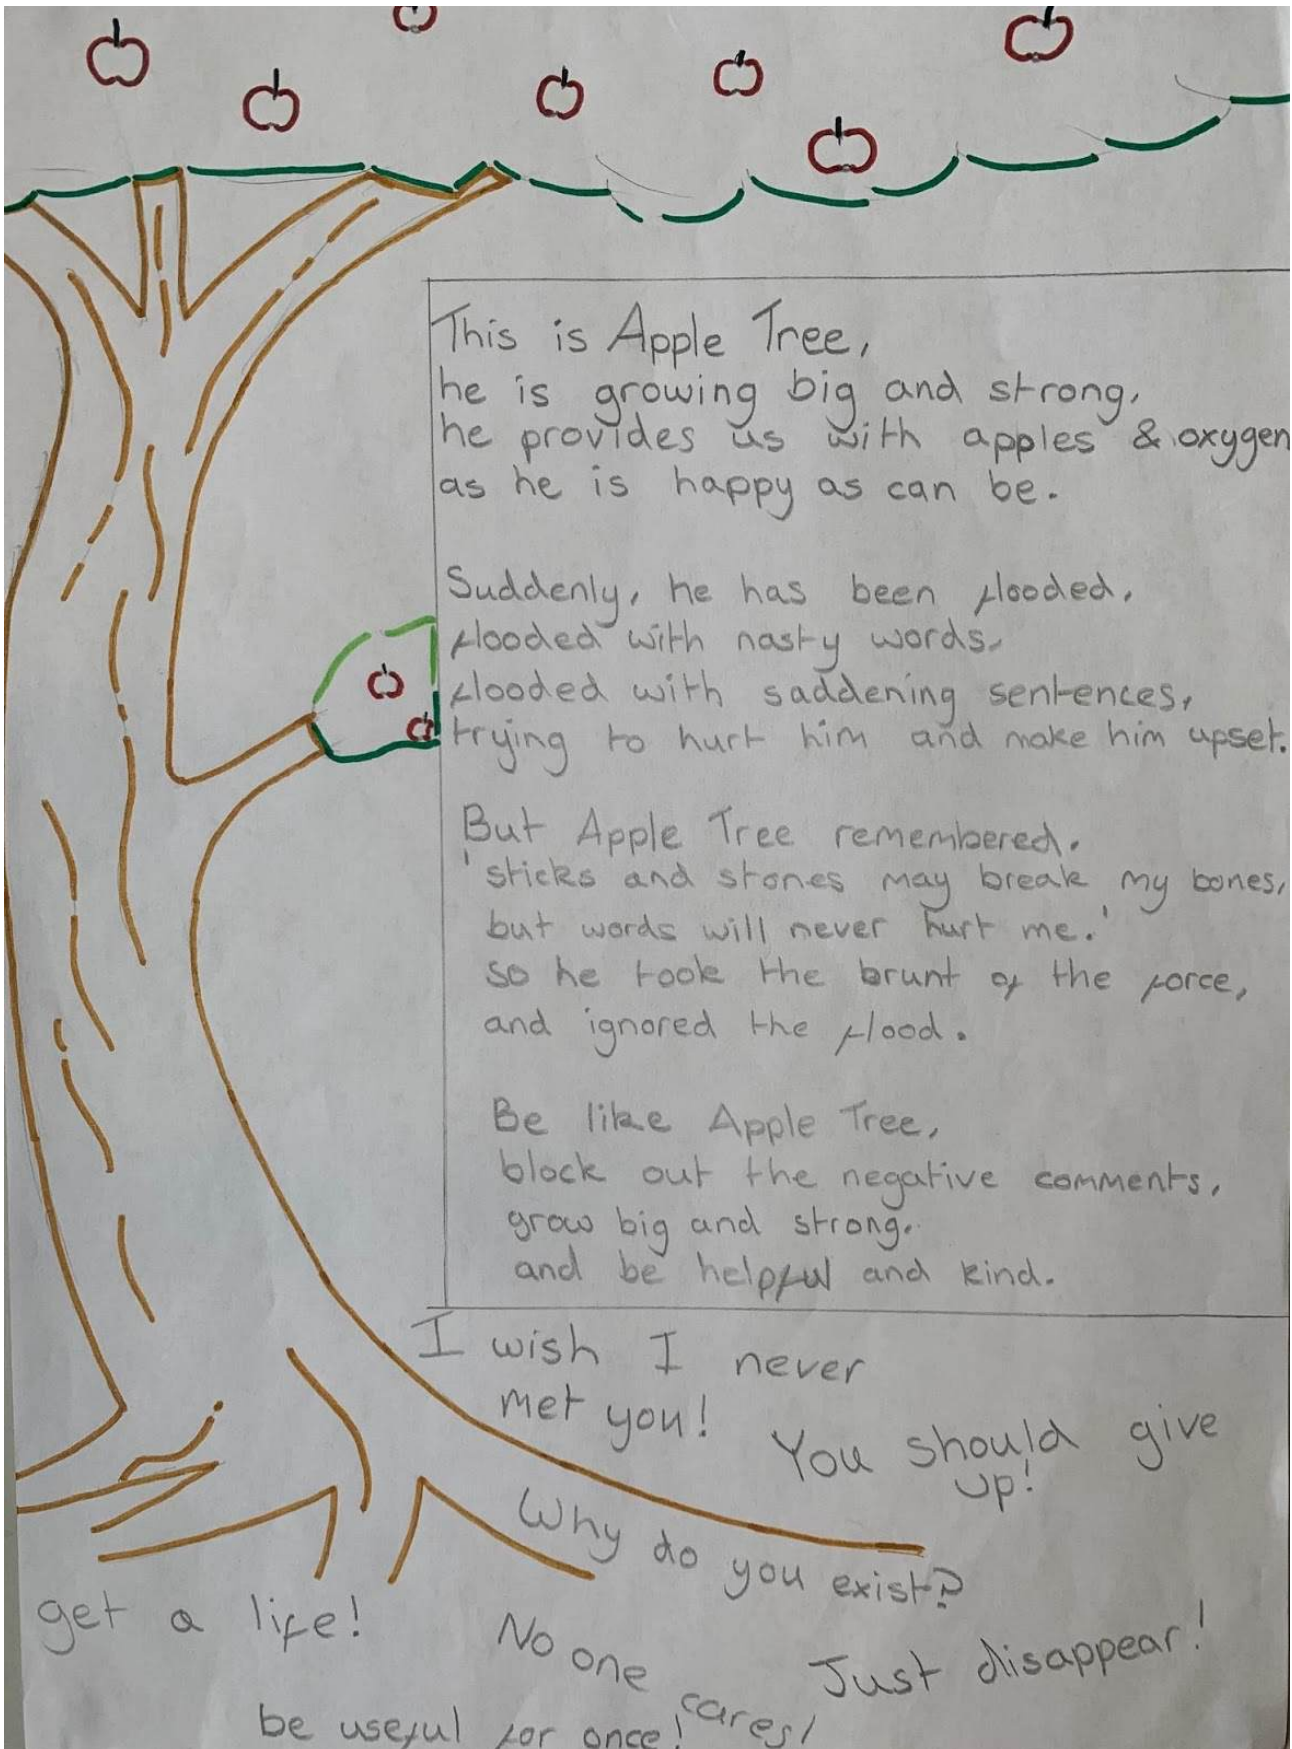 This is Apple Tree,
he is growing big and strong,
he provides us with apples & oxygen
as he is happy as can be.
Suddenly, he has been flooded,
flooded with nasty words,
flooded with saddening sentences,
trying to hurt him and make him upset.
But Apple Tree remembered.
'sticks and stones may break my bones,
but words will never hurt me.'
so he took the brunt of the force,
and ignored the flood.
Be like Apple Tree,
block out the negative comments,
grow big and strong.
and be helpful and kind.
I wish I never
met you!
You should give
up!
Why do you exist?
get a life!
No one cares!
Just disappear!
be useful for once!